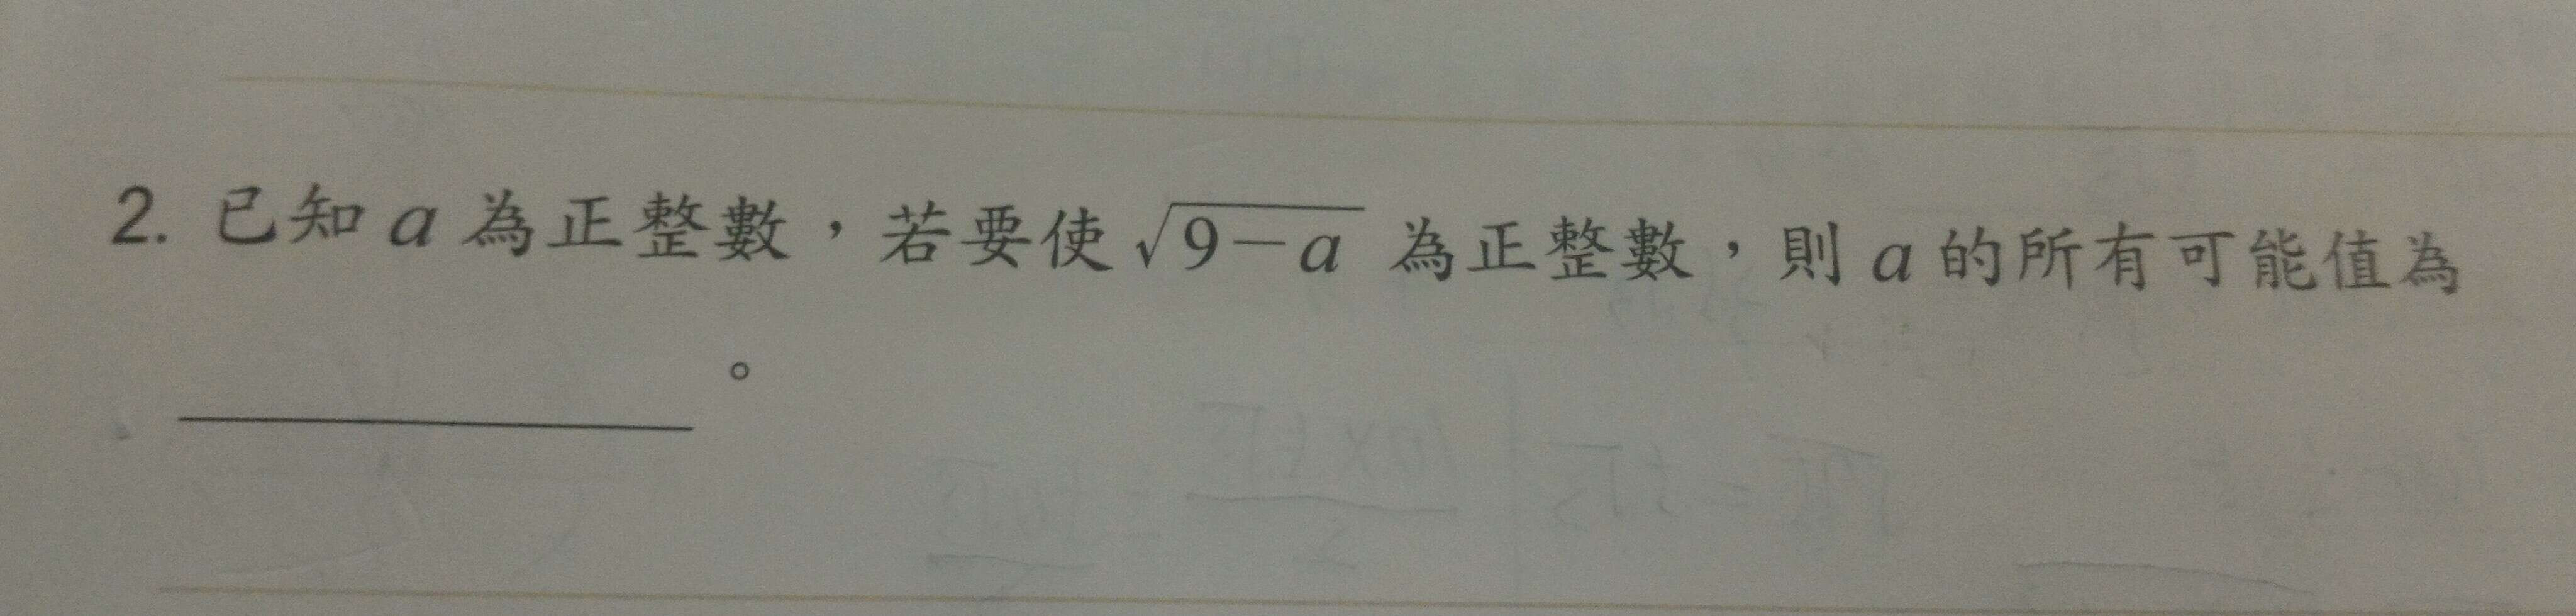 2. 已知 a 為正整數，若要使 √9－a 為正整數，則 a 的所有可能值為
。